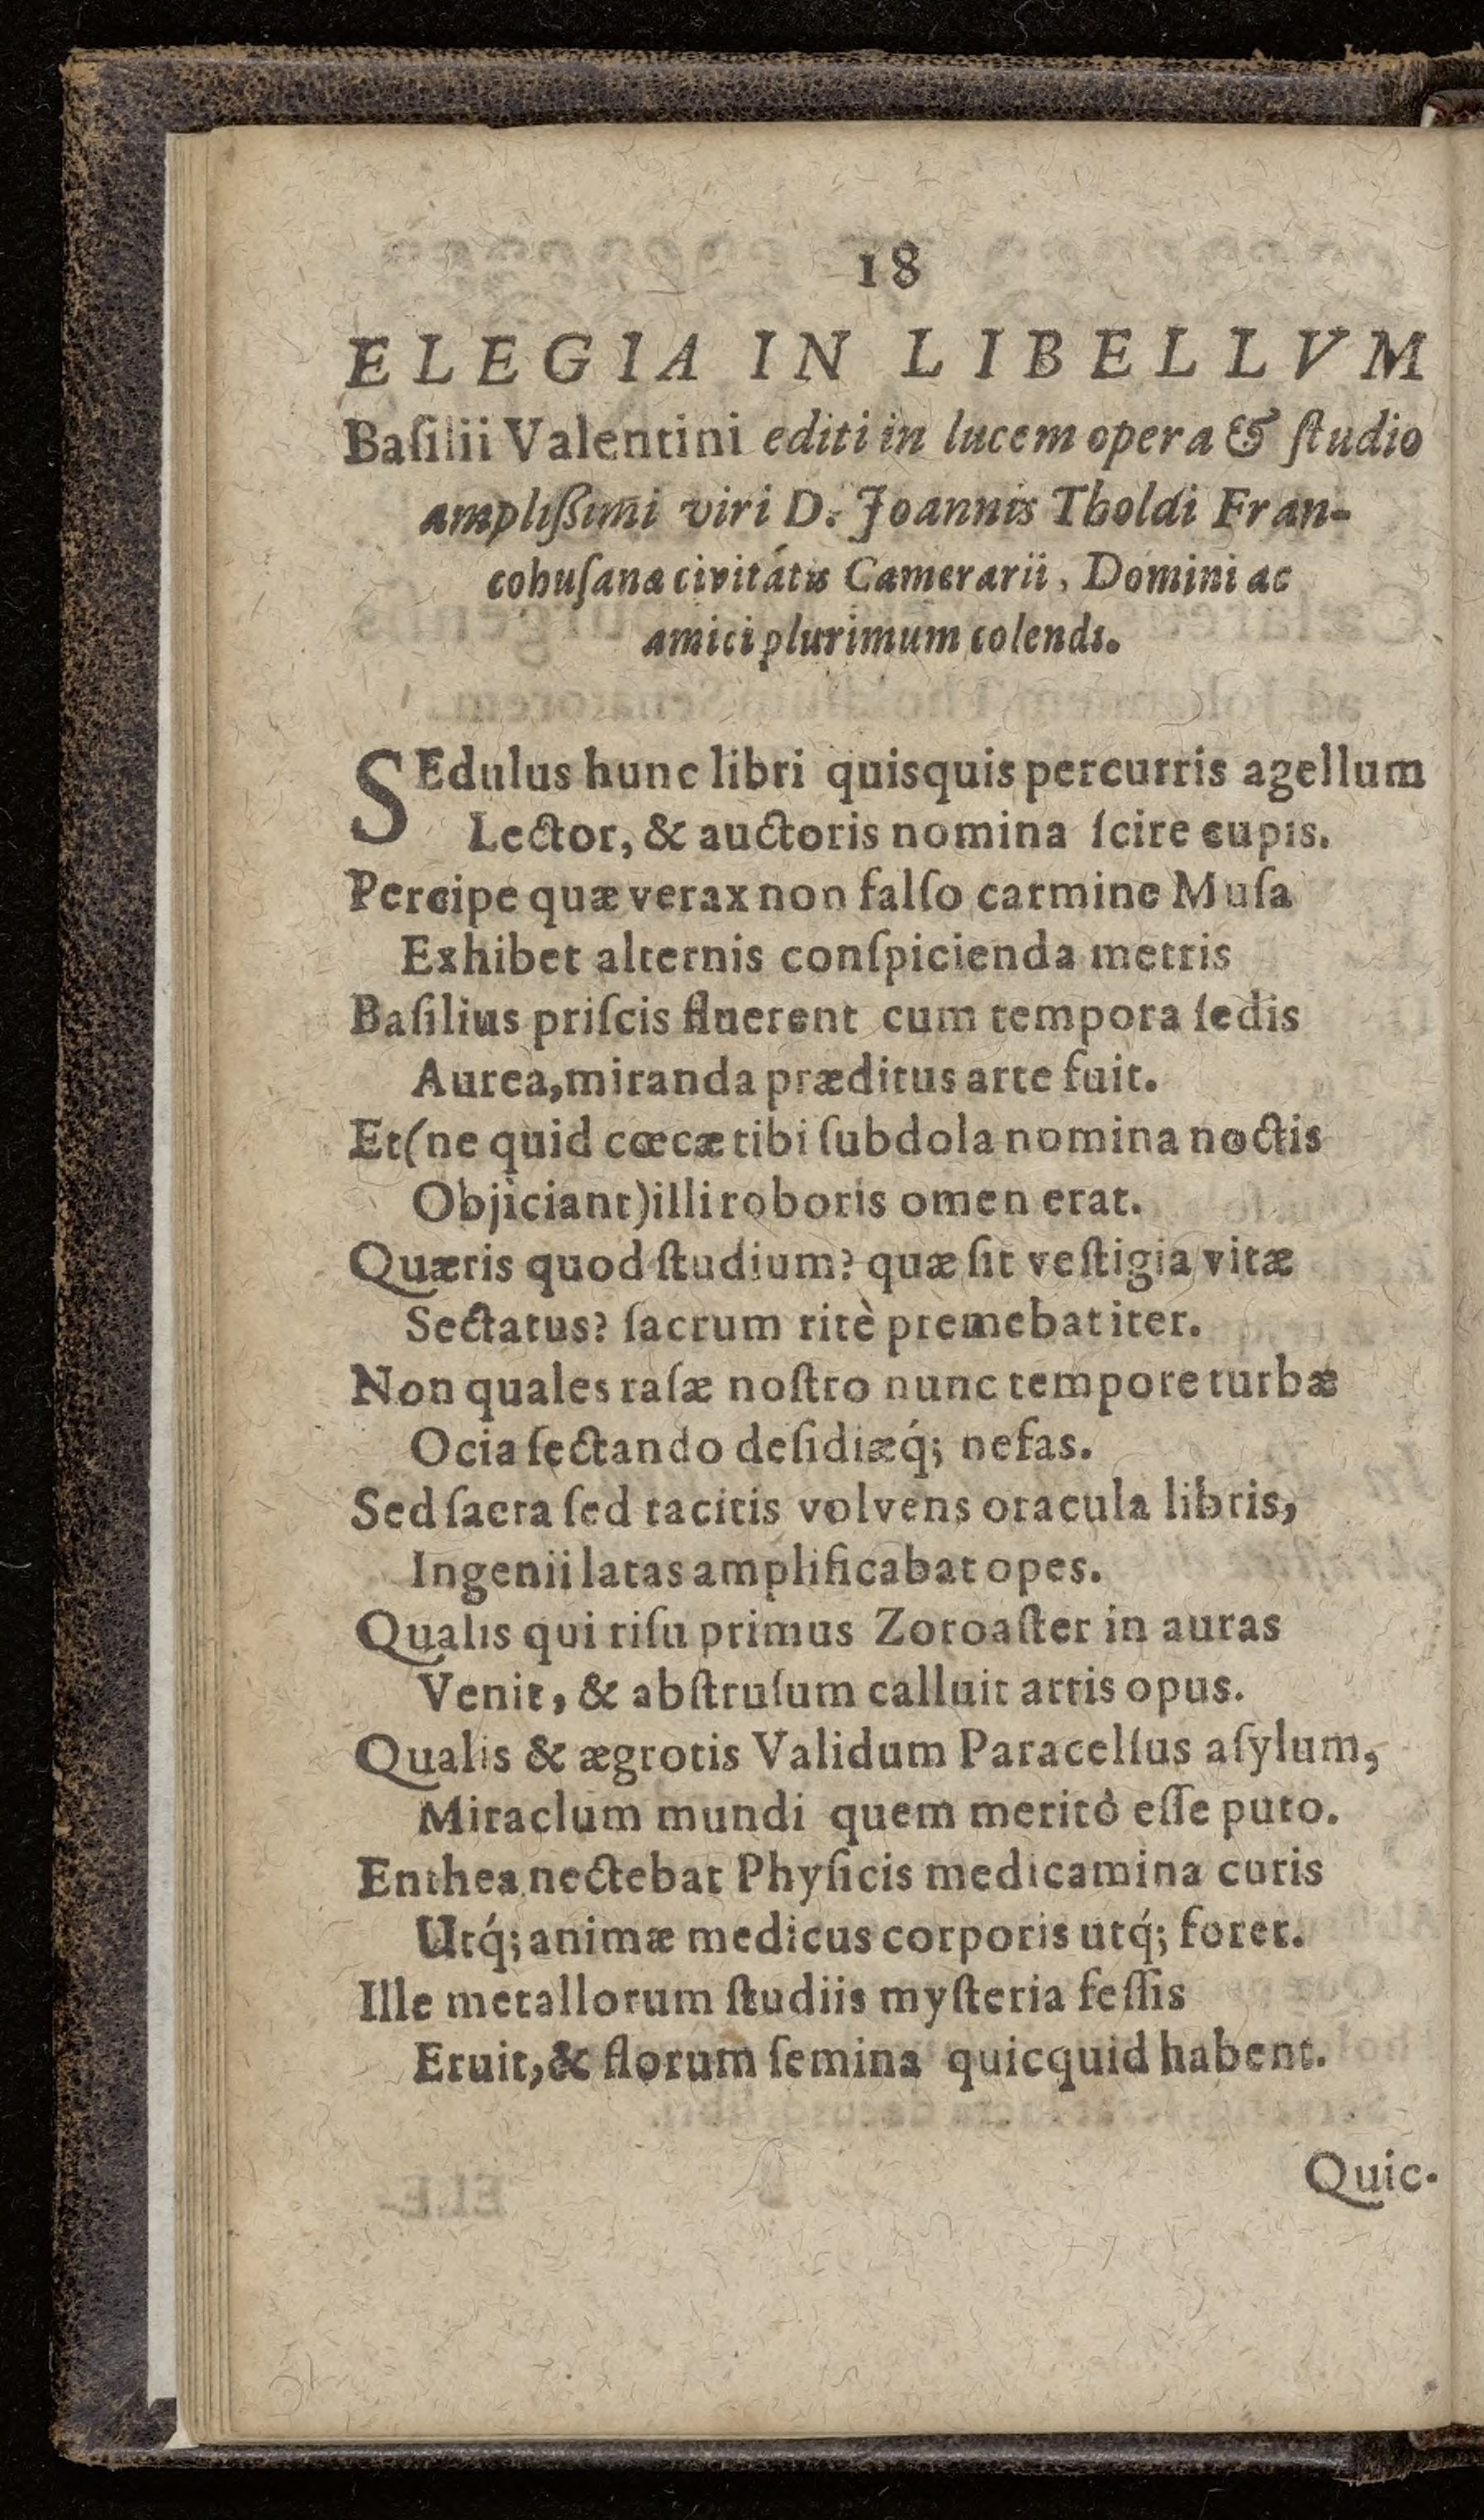 18
ELEGIA IN LIBELLVM
Baſilii Valentini editi in lucem opera & ſtudio
amplißimi viri D. Joannis Tholdi Fran-
cohuſanæ civitátis Camerarii, Domini ac
amici plurimum colendi.
SEdulus hunc libri quisquis percurris agellum
Lector, & auctoris nomina ſcire cupis.
Percipe quæ verax non falſo carmine Muſa
Exhibet alternis conſpicienda metris
Baſilius priſcis fluerent cum tempora ſedis
Aurea, miranda præditus arte fuit.
Et (ne quid cœcæ tibi ſubdola nomina noctis
Objiciant) illi roboris omen erat.
Quæris quod ſtudium? quæ ſit veſtigia vitæ
Sectatus? ſacrum ritè premebat iter.
Non quales raſæ noſtro nunc tempore turbæ
Ocia ſectando deſidiæq́; nefas.
Sed ſacra ſed tacitis volvens oracula libris,
Ingenii latas amplificabat opes.
Qualis qui riſu primus Zoroaſter in auras
Venit, & abſtruſum calluit artis opus.
Qualis & ægrotis Validum Paracelſus aſylum,
Miraclum mundi quem meritò eſſe puto.
Enthea nectebat Phyſicis medicamina curis
Utq́; animæ medicus corporis utq́; foret.
Ille metallorum ſtudiis myſteria feſſis
Eruit, & florum ſemina quicquid habent.
Quic-